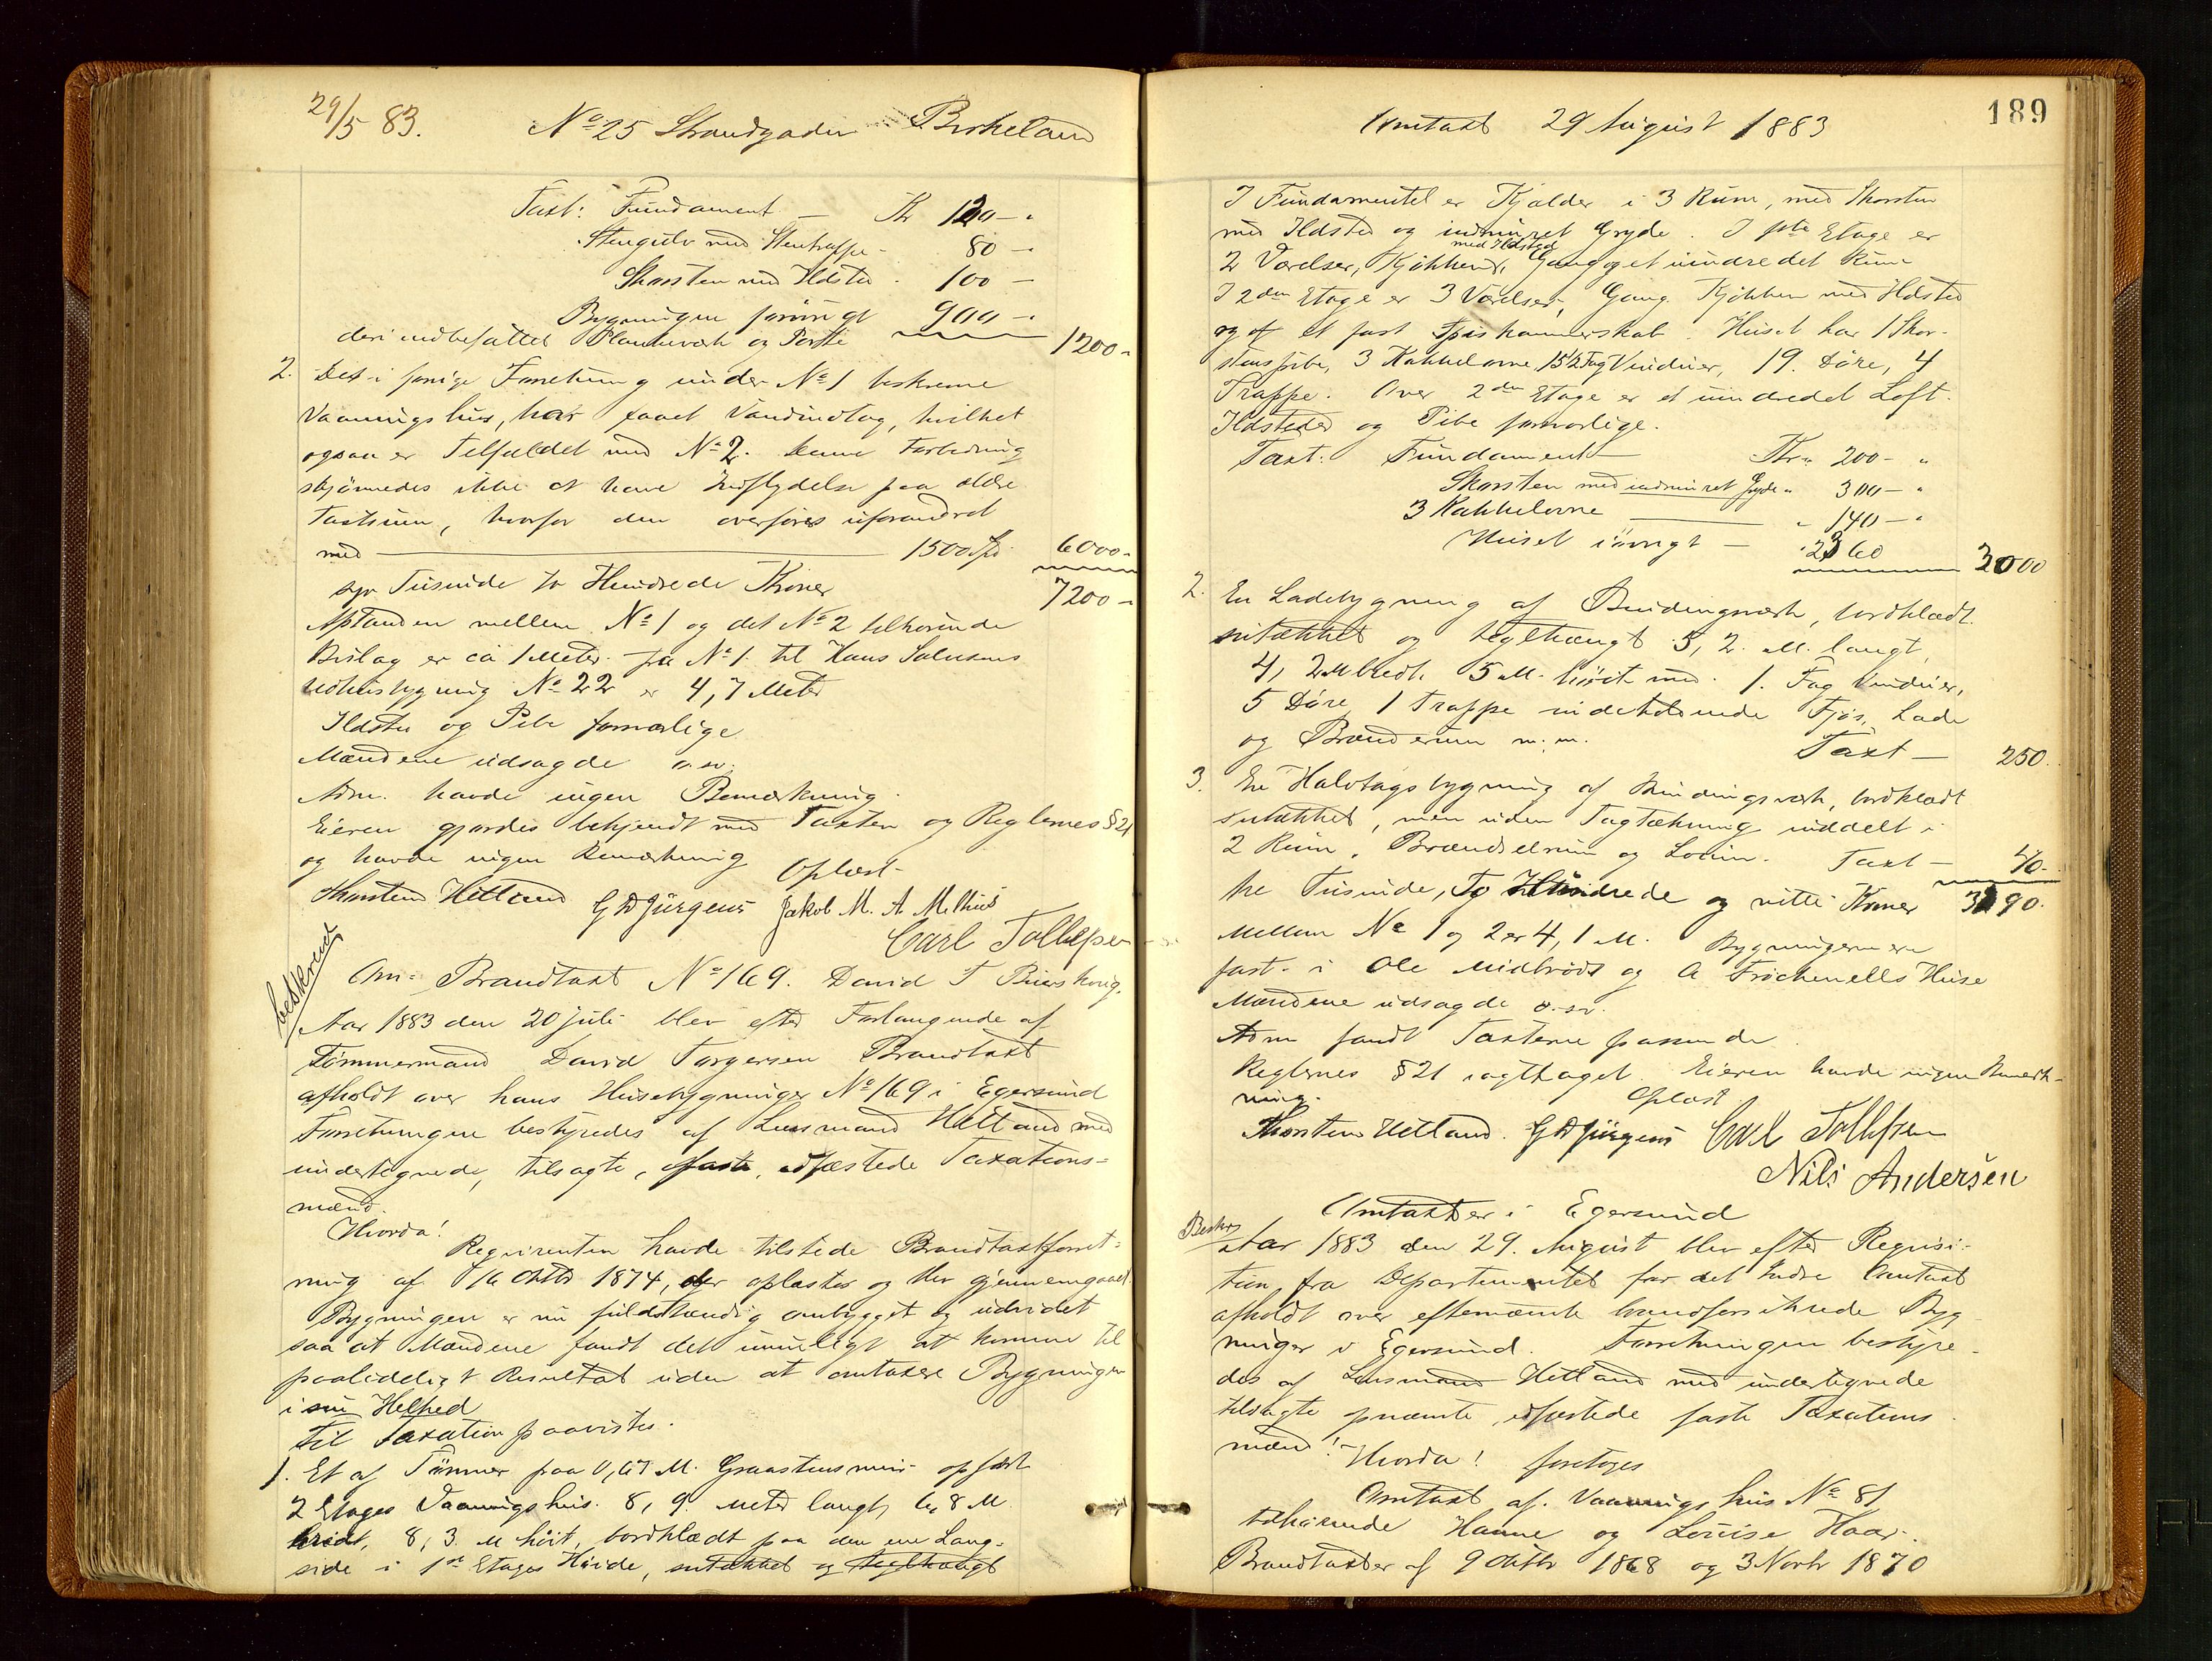 29/5 83. No 25 Strandgaden Birkeland
Taxt: Fundament — Kr 120 - "
Stengulv med Stentrappe - 80 - "
Skorsten med Ildsted - 100 -
Bygningen forøvrigt 900 - "
deri indbefattet Plankeværk og Porte 1200 -
2. Det i forrige Forretning under No 1 beskrevne
Vaaningshus, har faaet Vandindlag, hvilket
ogsaa er Tilfældet med No 2. Denne Forbedring
skjønnedes ikke at have Indflydelse paa ældre
Taxtsum, hvorfor den overføres uforandret
med — 1500 Spd. 6000 -
syv Tusinde to Hundrede Kroner 7200 -
Afstanden mellem No 1 og det No 2 tilhørende
Bislag er ca 1 Meter. fra No 1 til Hans Salvesens
Udhusbygning No 22 er 4,7 Meter
Ildsted og Pibe forsvarlige
Mændene udsagde o. sv.
Adm. havde ingen Bemærkning.
Eieren gjordes bekjendt med Taxten og Reglernes § 21
og havde ingen Bemærkning Oplæst -
Thorsten Hetland G D Jürgens Jakob M. A. Melhus
Carl Tollefsen
beskrevet
Om- Brandtaxt No 169. David T
Aar 1883 den 20 Juli blev efter Forlangende af
Tømmermand David Torgersen Brandtaxt
afholdt over hans Husebygninger No 169 i Egersund
Forretningen bestyredes af Lensmand Hetland med
undertegnede, tilsagte, faste, edfæstede Taxations-
mænd.
Hvorda!
Requirenten havde tilstede Brandtaxtforret-
ning af 1874, der oplæstes og blev gjennemgaaet
Bygningen er nu fuldstændig ombygget og udvidet
saa at Mændene fandt det umuligt at komme til
paalideligt Resultat uden at omtaxere Bygningen
i sin Helhed
Til Taxation paavistes.
1. Et af Tømmer paa 0,67 M. Graastensmur opført
2 Etages Vaaningshus. 8,9 Meter langt, 6,8 M
bredt, 8,3 M høit, bordklædt paa den ene Lang-
side i 1ste Etages Høide, sutækket og teglhængt
Omtaxt 29 August 1883 189
I Fundamentet er Kjælder i 3 Rum, med Skorsten
med Ildsted og indmuret Gryde. I 1ste Etage er
2 Værelser, Kjøkken med Ildsted, Gang og et uindredet Rum
I 2den Etage er 3 Værelser, Gang Kjøkken med Ildsted
og et fast Spiskammerskab. Huset har 1 Skor-
stenspibe, 3 Kakkelovne 15 1/2 Fag Vinduer, 19. Døre, 4
Trapper. Over 2den Etage er et uindredet Loft.
Ildsteder og Pibe forsvarlige.
Taxt. Fundament — Kr. 200 - "
Skorsten med indmuret Gryde " 300 - "
3 Kakkelovne — " 140 - "
Huset iøvrigt — " 2360 3000
2. En Ladebygning af Bindingsværk, bordklædt
sutækket og teglhængt 5,2. M. langt,
4,2 M bredt. 5 M. høit med. 1. Fag Vinduer,
5 Døre, 1 Trappe indeholdende Fjøs, Lade
og Brænderum m. m. Taxt — 250.
3. En Halvtagsbygning af Bindingsværk, bordklædt
sutækket, men uden Tagtækning inddelt i
2 Rum, Brændselrum og Locum. Taxt — 40 -
tre Tusinde, To Hundrede og nitti Kroner 3290.
Mellem No 1 og 2 er 4,1 M. Bygningerne ere
fast i Ole Midbrøds og A Frøchenells Huse
Mændene udsagde o. sv.
Adm fandt Taxterne passende.
Reglernes § 21 iagttaget. Eieren havde ingen Bemærk-
ning. Oplæst
Thorsten Hetland. G D Jürgens Carl Tollefsen
Nils Andersen
Omtaxter i Egersund
Beskr
Aar 1883 den 29. August blev efter Requisi-
tion fra Departementet for det Indre Omtaxt
afholdt over efternævnte brandforsikrede Byg-
ninger i Egersund. Forretningen bestyre-
des af Lensmand Hetland med undertegnede
tilsagte opnævnte, edfæstede faste Taxations
mænd! Hvorda! foretoges
Omtaxt af. Vaaningshus No 81
tilhørende Hanne og Lovise Haar.
Brandtaxter af 9 Oktbr 1868 og 3 Novbr 1870